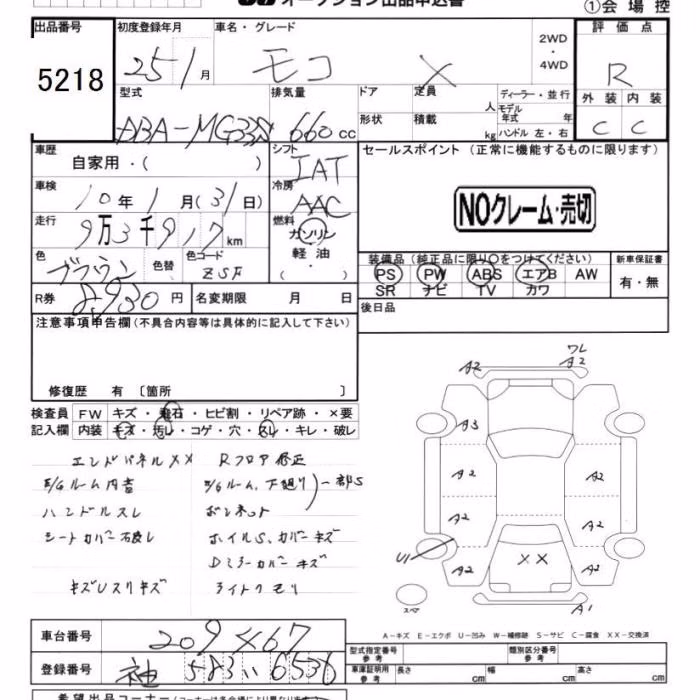 オークション出品申込書
①会場控
出品番号 初度登録年月 車名・グレード 評価点
5218 25/1月 モコ X 2WD・4WD R
型式 排気量 ドア 定員 人 ディーラー・並行 外装 内装
DBA-MG33S 660cc 形状 積載 kg モデル年式 年 ハンドル 左・右 C C
車歴 自家用・( ) シフト IAT セールスポイント (正常に機能するものに限ります)
車検 10年1月(31日) 冷房 AAC NOクレーム・売切
走行 9万3千917km 燃料 ガソリン
軽油・( )
色 ブラウン 色替 色コード ZSF 装備品(純正品に限り○をつけてください) 新車保証書
PS PW ABS エアB AW 有・無
SR ナビ TV カワ
R券 8,930円 名変期限 月 日 後日品
注意事項申告欄(不具合内容等は具体的に記入して下さい)
修復歴 有 〔箇所 〕
検査員 FW キズ・飛石・ヒビ割・リペア跡・×要
記入欄 内装 キズ・汚レ・コゲ・穴・スレ・キレ・破レ
エンドパネルXX Rフロア修正
E/Gルーム内 E/Gルーム、下廻り 一部S
ハンドルスレ ボンネット
シートカバー ホイルS、カバーキズ
Dミラーカバーキズ
キズUスリキズ ライトクモリ
A2 ワレ A2
A3
A2 A2
A2 A2
U1 A2 XX A2
スペア A1
A-キズ E-エクボ U-凹み W-補修跡 S-サビ C-腐食 XX-交換済
車台番号 209467
登録番号 袖 583 い 6536
型式指定番号 参考 類別区分番号 参考
車庫証明用 参考 長さ cm 幅 cm 高さ cm
希望出品コーナー